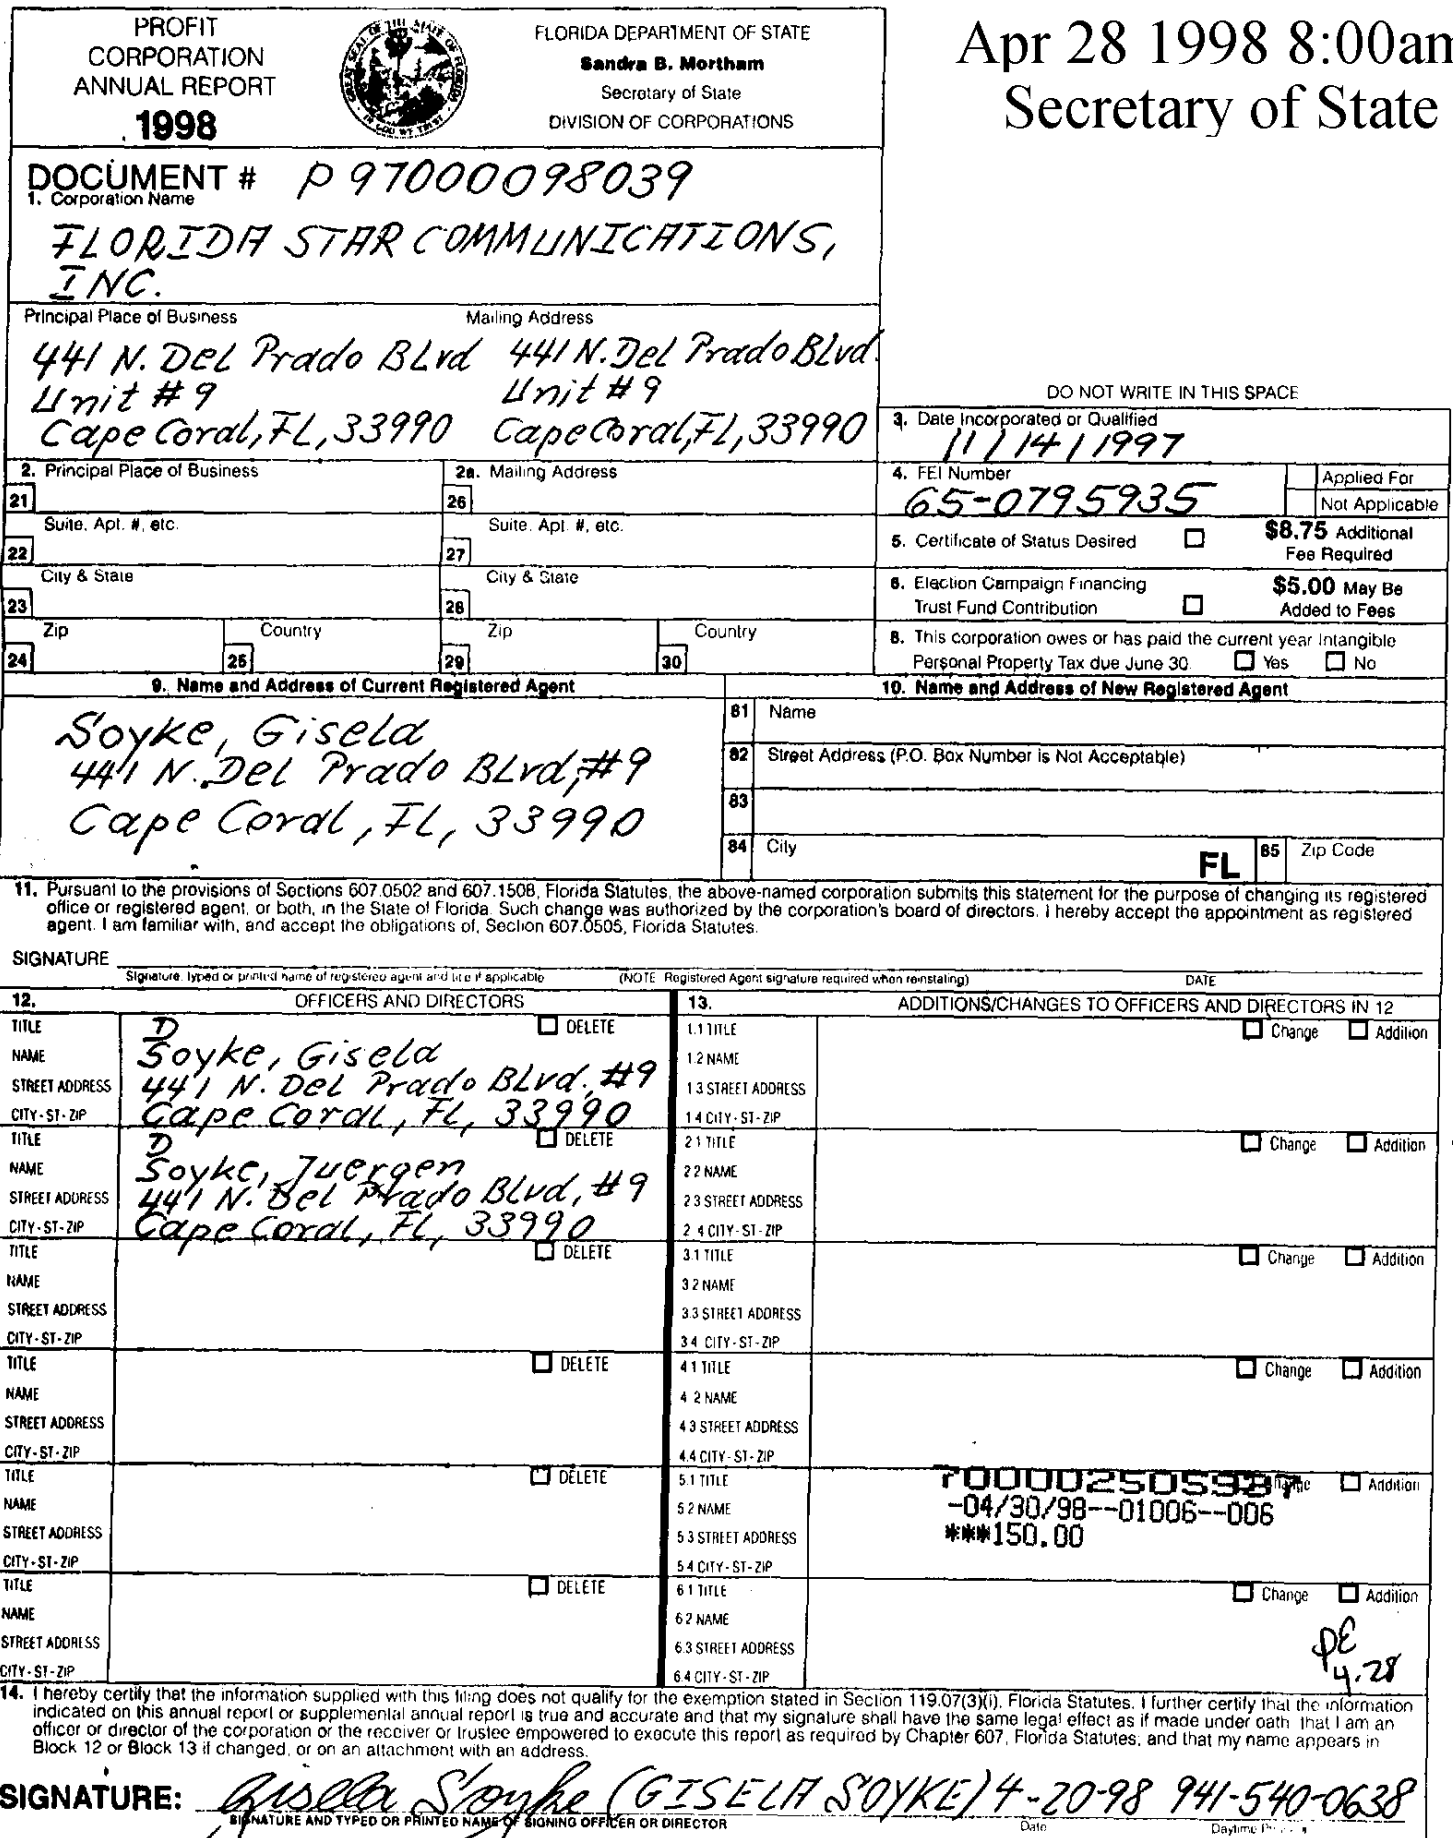 PROFIT
CORPORATION
ANNUAL REPORT
1998
GREAT SEAL OF THE STATE OF FLORIDA
IN GOD WE TRUST
FLORIDA DEPARTMENT OF STATE
Sandra B. Mortham
Secretary of State
DIVISION OF CORPORATIONS
Apr 28 1998 8:00am
Secretary of State
DOCUMENT # P97000098039
1. Corporation Name
FLORIDA STAR COMMUNICATIONS,
INC.
Principal Place of Business Mailing Address
441 N. Del Prado BLvd 441 N. Del Prado Blvd.
Unit #9 Unit #9
Cape Coral, FL, 33990 Cape Coral, FL, 33990
DO NOT WRITE IN THIS SPACE
3. Date Incorporated or Qualified
11/14/1997
2. Principal Place of Business 2a. Mailing Address
21 26
4. FEI Number
65-0795935
Applied For
Not Applicable
Suite, Apt. #, etc. Suite, Apt. #, etc.
22 27
5. Certificate of Status Desired $8.75 Additional
Fee Required
City & State City & State
23 28
6. Election Campaign Financing $5.00 May Be
Trust Fund Contribution Added to Fees
Zip Country Zip Country
24 25 29 30
8. This corporation owes or has paid the current year Intangible
Personal Property Tax due June 30. Yes No
9. Name and Address of Current Registered Agent
Soyke, Gisela
441 N. Del Prado BLvd, #9
Cape Coral, FL, 33990
10. Name and Address of New Registered Agent
81 Name
82 Street Address (P.O. Box Number is Not Acceptable)
83
84 City FL 85 Zip Code
11. Pursuant to the provisions of Sections 607.0502 and 607.1508, Florida Statutes, the above-named corporation submits this statement for the purpose of changing its registered
office or registered agent, or both, in the State of Florida. Such change was authorized by the corporation's board of directors. I hereby accept the appointment as registered
agent. I am familiar with, and accept the obligations of, Section 607.0505, Florida Statutes.
SIGNATURE
Signature, typed or printed name of registered agent and title if applicable (NOTE Registered Agent signature required when reinstating) DATE
12. OFFICERS AND DIRECTORS
TITLE D DELETE
NAME Soyke, Gisela
STREET ADDRESS 441 N. Del Prado BLvd., #9
CITY-ST-ZIP Cape Coral, FL, 33990
TITLE D DELETE
NAME Soyke, Juergen
STREET ADDRESS 441 N. Del Prado Blvd, #9
CITY-ST-ZIP Cape Coral, FL, 33990
TITLE DELETE
NAME
STREET ADDRESS
CITY-ST-ZIP
TITLE DELETE
NAME
STREET ADDRESS
CITY-ST-ZIP
TITLE DELETE
NAME
STREET ADDRESS
CITY-ST-ZIP
TITLE DELETE
NAME
STREET ADDRESS
CITY-ST-ZIP
13. ADDITIONS/CHANGES TO OFFICERS AND DIRECTORS IN 12
1.1 TITLE Change Addition
1.2 NAME
1.3 STREET ADDRESS
1.4 CITY-ST-ZIP
2.1 TITLE Change Addition
2.2 NAME
2.3 STREET ADDRESS
2.4 CITY-ST-ZIP
3.1 TITLE Change Addition
3.2 NAME
3.3 STREET ADDRESS
3.4 CITY-ST-ZIP
4.1 TITLE Change Addition
4.2 NAME
4.3 STREET ADDRESS
4.4 CITY-ST-ZIP
5.1 TITLE 700002505987 Change Addition
5.2 NAME -04/30/98--01006--006
5.3 STREET ADDRESS ***150.00
5.4 CITY-ST-ZIP
6.1 TITLE Change Addition
6.2 NAME
6.3 STREET ADDRESS
6.4 CITY-ST-ZIP
4.28
14. I hereby certify that the information supplied with this filing does not qualify for the exemption stated in Section 119.07(3)(i), Florida Statutes. I further certify that the information
indicated on this annual report or supplemental annual report is true and accurate and that my signature shall have the same legal effect as if made under oath that I am an
officer or director of the corporation or the receiver or trustee empowered to execute this report as required by Chapter 607, Florida Statutes; and that my name appears in
Block 12 or Block 13 if changed, or on an attachment with an address.
SIGNATURE: Gisela Soyke (GISELA SOYKE) 4-20-98 941-540-0638
SIGNATURE AND TYPED OR PRINTED NAME OF SIGNING OFFICER OR DIRECTOR Date Daytime